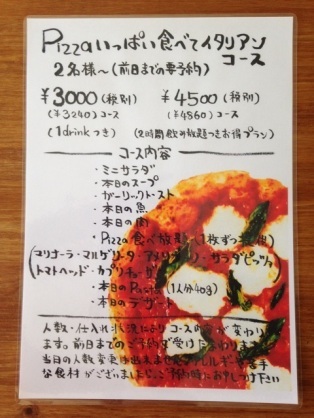 Pizzaいっぱい食べてイタリアン
コース
2名様〜(前日までの要予約)
¥3000(税別) ¥4500(税別)
(¥3240)コース (¥4860)コース
(1drinkつき) (2時間飲み放題つきお得プラン)
コース内容
・ミニサラダ
・本日のスープ
・ガーリックトースト
・本日の魚
・本日の肉
・Pizza食べ放題(1枚ずつ
(マリナーラ・マルゲリータ・ サラダピッツァ
トマトヘッド・カプリチョーザ)
・本日のPasta(1人分40g)
・本日のデザート
人数・仕入れ状況によりコース内容が変わり
ます。前日までのご予約で受けたまわります。
当日の人数変更は出来ません。アレルギー等苦手
な食材がございましたら、ご予約時にお申しつけ下さい